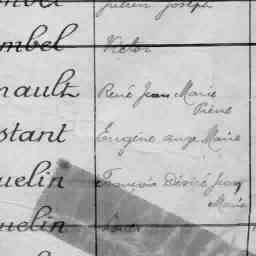 Julien Joseph
mbel Victor
nault René Jean Marie
Pierre
stant Eugène Ange Marie
uelin François Désiré Jean
Marie
uelin Louis